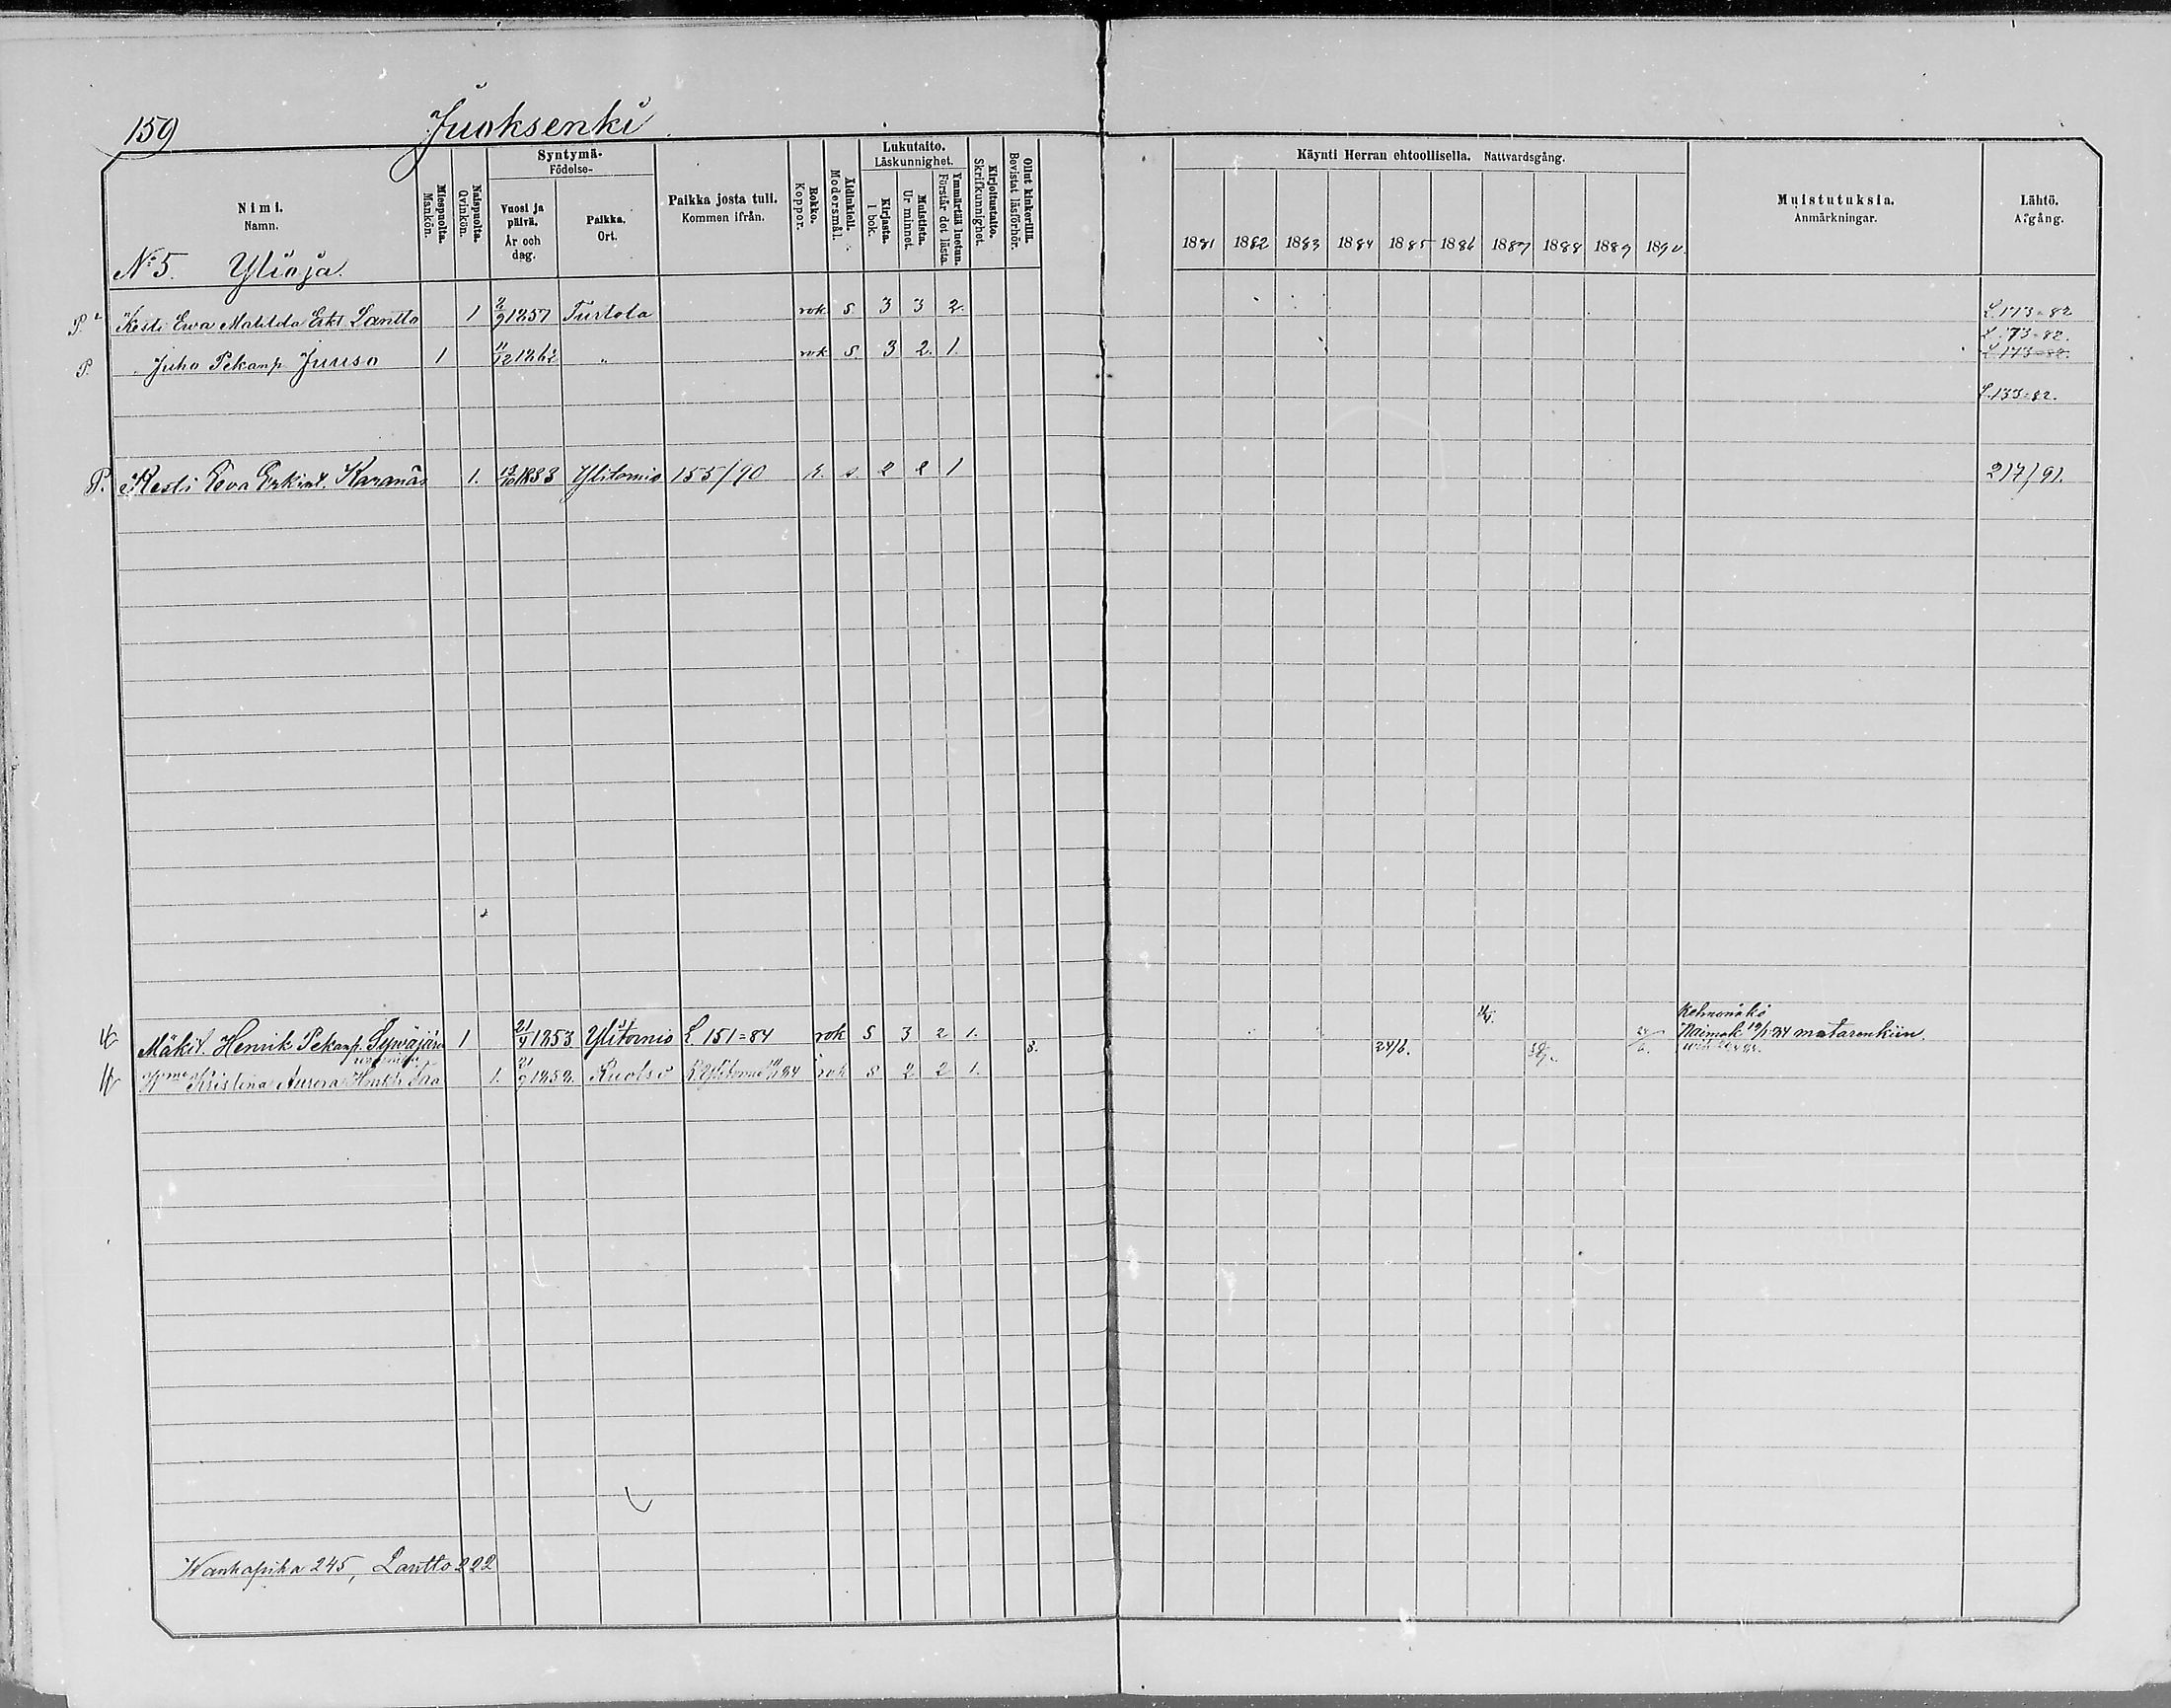 159 Juoksenki
Nimi. Namn.
Miespuolta. Mankön.
Naispuolta. Qvinkön.
Syntymä- Födelse-
Vuosi ja päivä. År och dag.
Paikka. Ort.
Paikka josta tuli. Kommen ifrån.
Rokko. Koppor.
Äidinkieli. Modersmål.
Lukutaito. Läskunnighet.
Kirjasta. I bok.
Muistista. Ur minnet.
Ymmärtää luetun. Förstår det lästa.
Kirjoitustaito. Skrifkunnighet.
Ollut kinkerillä. Bevistat läsförhör.
Käynti Herran ehtoollisella. Nattvardsgång.
1881 1882 1883 1884 1885 1886 1887 1888 1889 1890.
Muistutuksia. Anmärkningar.
Lähtö. Afgång.
No 5. Ylioja.
P. Kesti Ewa Matilda Erkt Lantto 1 2/9 1857 Turtola rok s. 3 3 2. L 173=82
L 173=82.
P. Juho Pekanp Juuso 1 11/12 1862 „ rok s. 3 2. 1. L 173=82.
L 133=82.
P. Kesti Eeva Erkint. 1. 1883 Ylitornio 155/90 r. s. 2 2 1 217/91.
Mäkit. Henrik Pekanp. 1 21/9 1853 Ylitornio L 151=84 rok s 3 2 1. 8. Naimak. 19/1 84 matarenkiin.
24/6.
Wmo Kristina Aurora 1. Ruotsi rok s 2 2 1.
Wanhapiha 245, Lantto 222